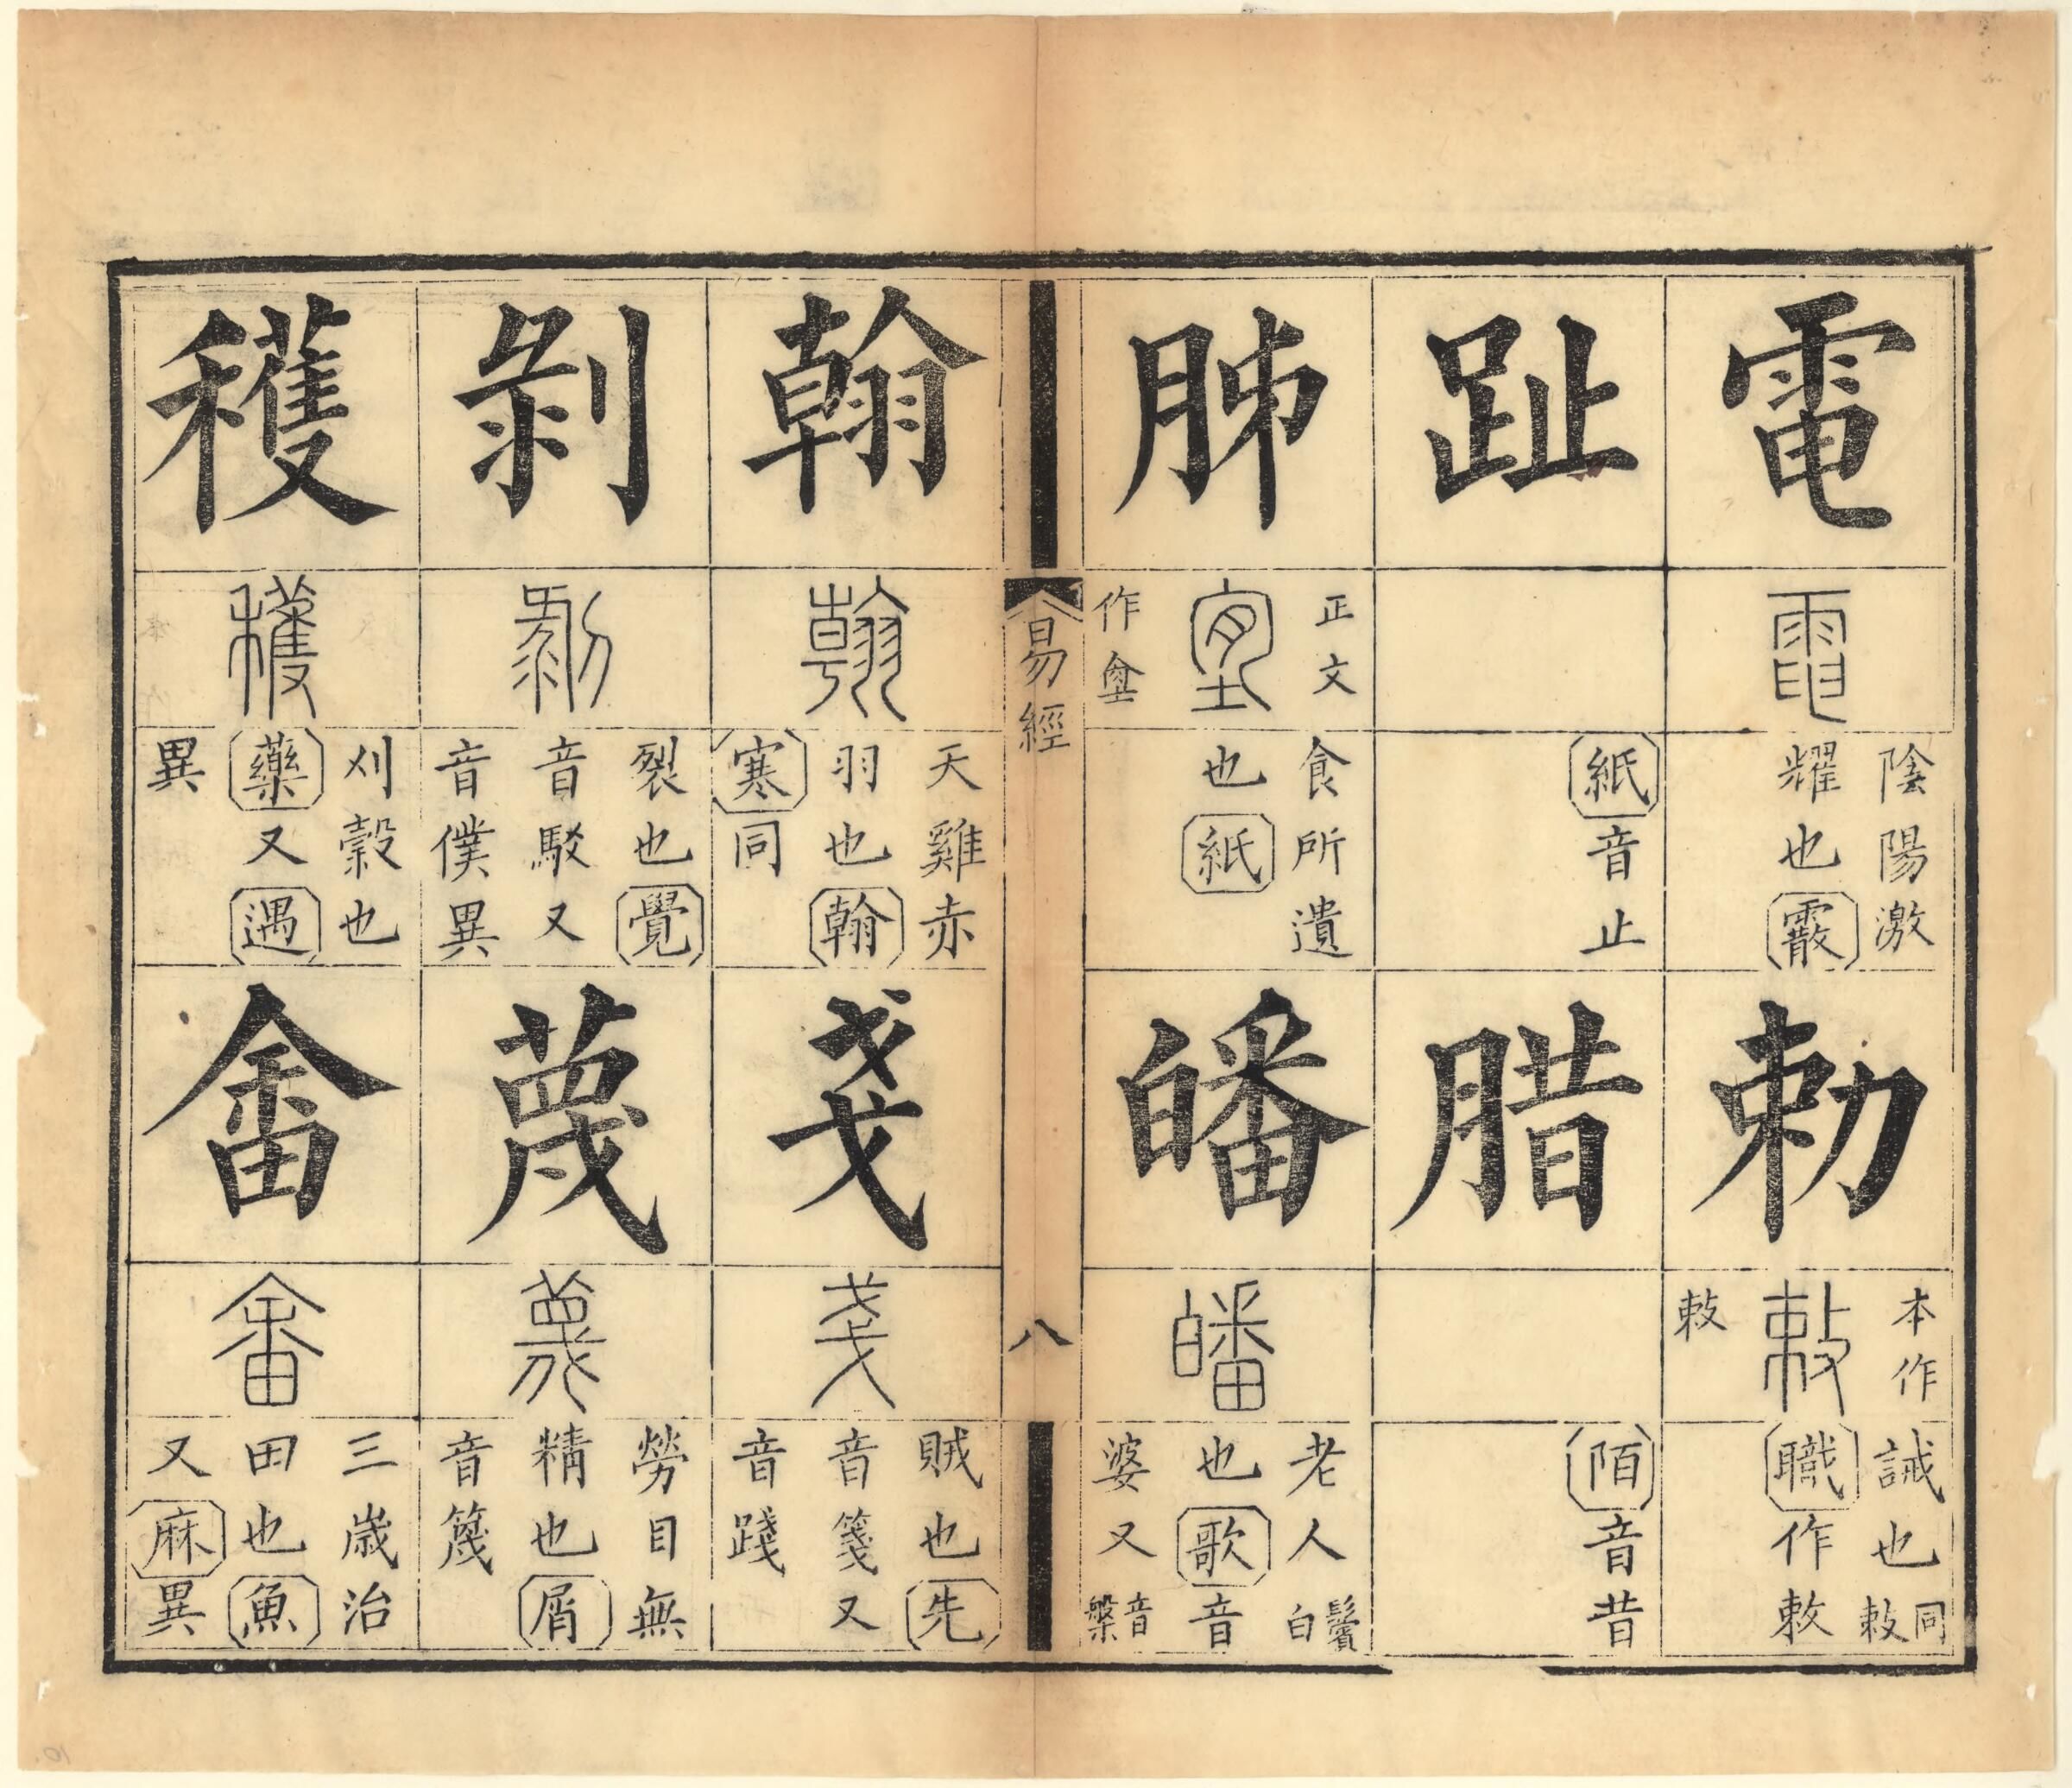 電
陰陽激
耀也霰
勅
本作
敕
誡也敕同
職作敕
趾
紙音止
腊
陌音昔
胏
正文
作㙁
食所遺
也紙
皤
老人鬢白
也歌音
婆又音槃
易經
八
翰
天雞赤
羽也翰
寒同
戔
賊也先
音箋又
音踐
剝
裂也覺
音駁又
音僕異
蔑
勞目無
精也屑
音篾
穫
刈穀也
藥又遇
異
畬
三歲治
田也魚
又麻異